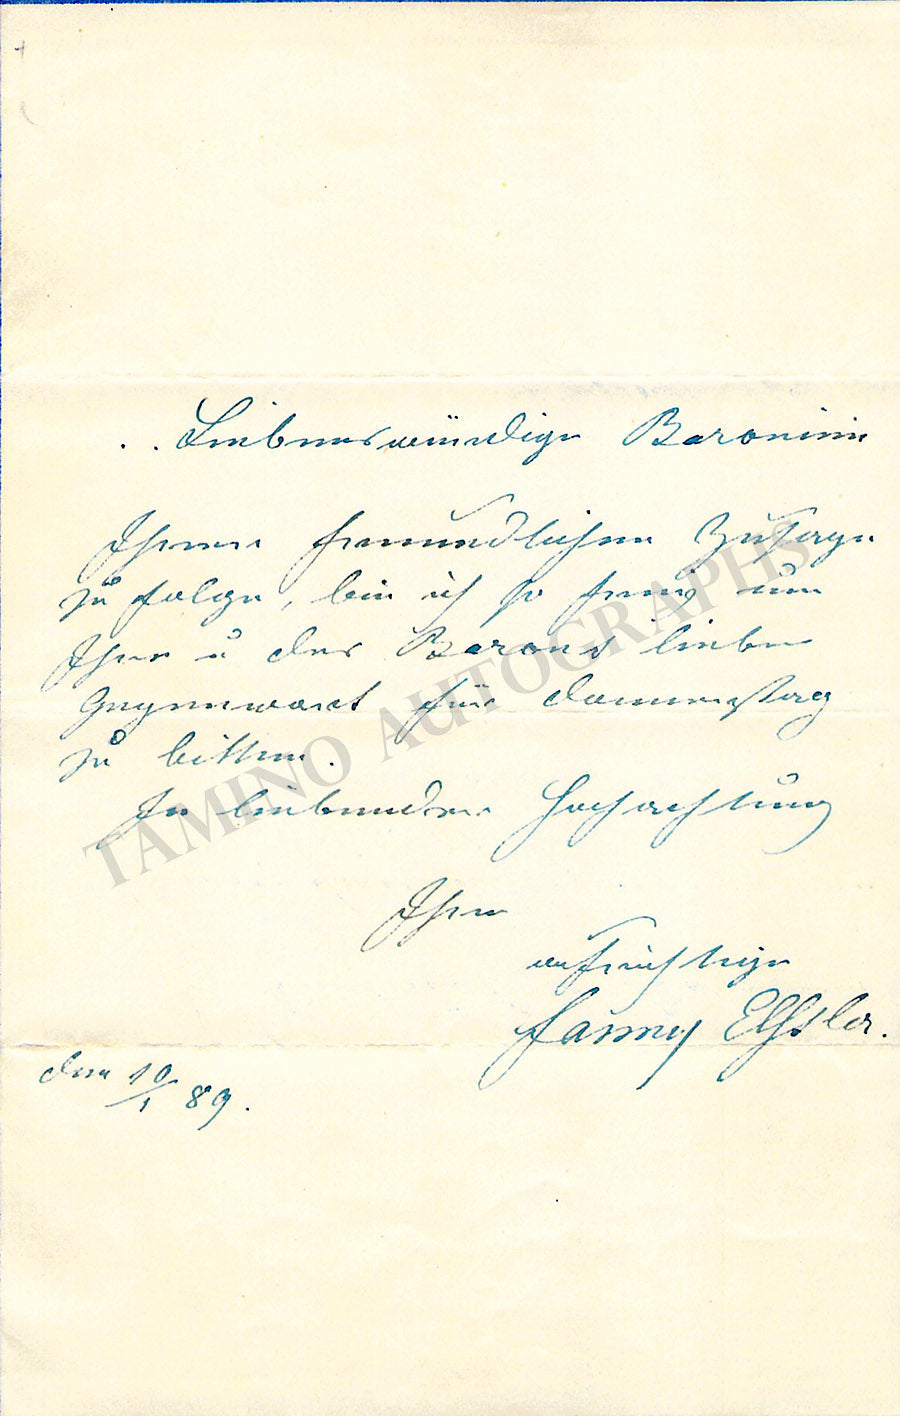 Liebenswürdige Baroninn
Ihrer freundlichen Zusage
zu folge, bin ich so frei um
Ihre u des Barons liebe
Gegenwart für Donnerstag
zu bitten.
In liebender Hochachtung
Ihre
aufrichtige
Fanny Elßler.
den 10/1 89.
TAMINO AUTOGRAPHS